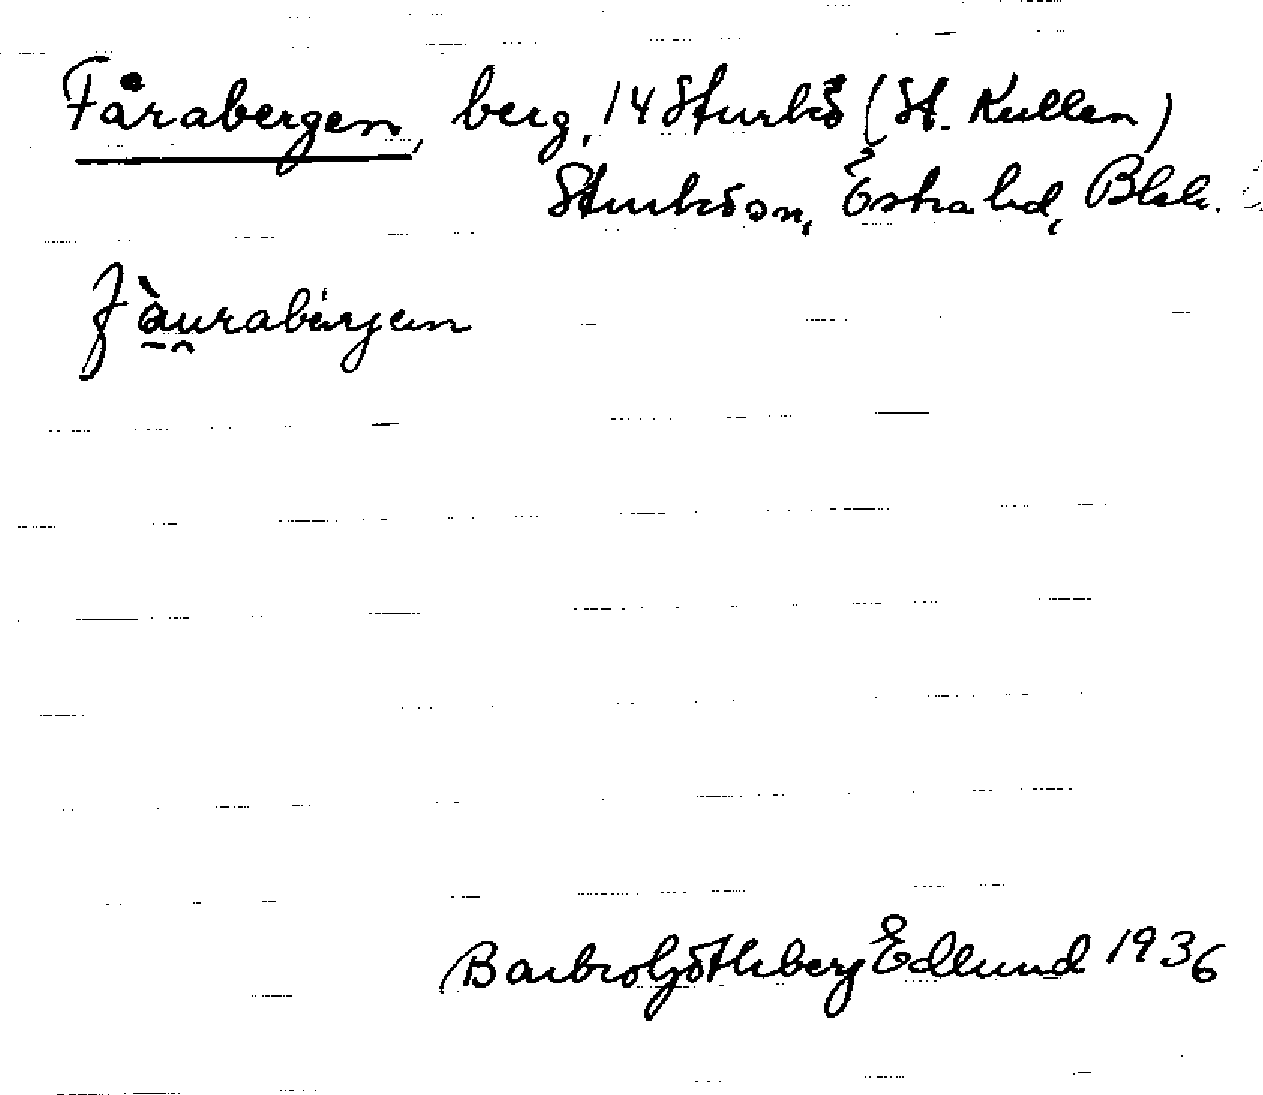 Fårabergen, berg, 14 Sturkö (St. Kullen)
Sturköon, Östra hd, Blek.
fàurabärjen
Barbro Götheberg Edlund 1936